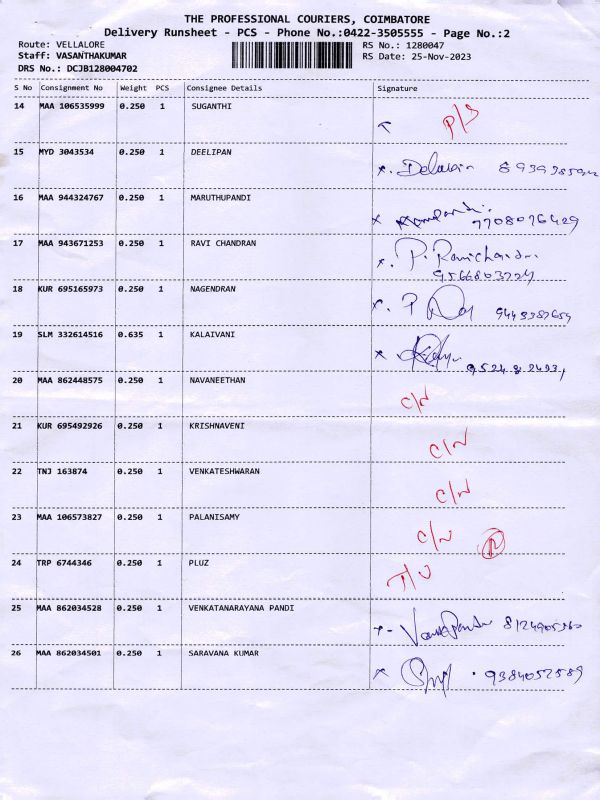 THE PROFESSIONAL COURIERS, COIMBATORE
Delivery Runsheet - PCS - Phone No.:0422-3505555 - Page No.:2
Route: VELLALORE
Staff: VASANTHAKUMAR
DRS No.: DCJB128004702
RS No.: 1280047
RS Date: 25-Nov-2023
S No Consignment No Weight PCS Consignee Details Signature
14 MAA 106535999 0.250 1 SUGANTHI P/S
15 MYD 3043534 0.250 1 DEELIPAN
16 MAA 944324767 0.250 1 MARUTHUPANDI 7708076429
17 MAA 943671253 0.250 1 RAVI CHANDRAN P. Ravichandran
9566803724
18 KUR 695165973 0.250 1 NAGENDRAN
19 SLM 332614516 0.635 1 KALAIVANI
20 MAA 862448575 0.250 1 NAVANEETHAN C/N
21 KUR 695492926 0.250 1 KRISHNAVENI C/N
22 TNJ 163874 0.250 1 VENKATESHWARAN C/N
23 MAA 106573827 0.250 1 PALANISAMY C/N
24 TRP 6744346 0.250 1 PLUZ
25 MAA 862034528 0.250 1 VENKATANARAYANA PANDI
26 MAA 862034501 0.250 1 SARAVANA KUMAR 9384052589